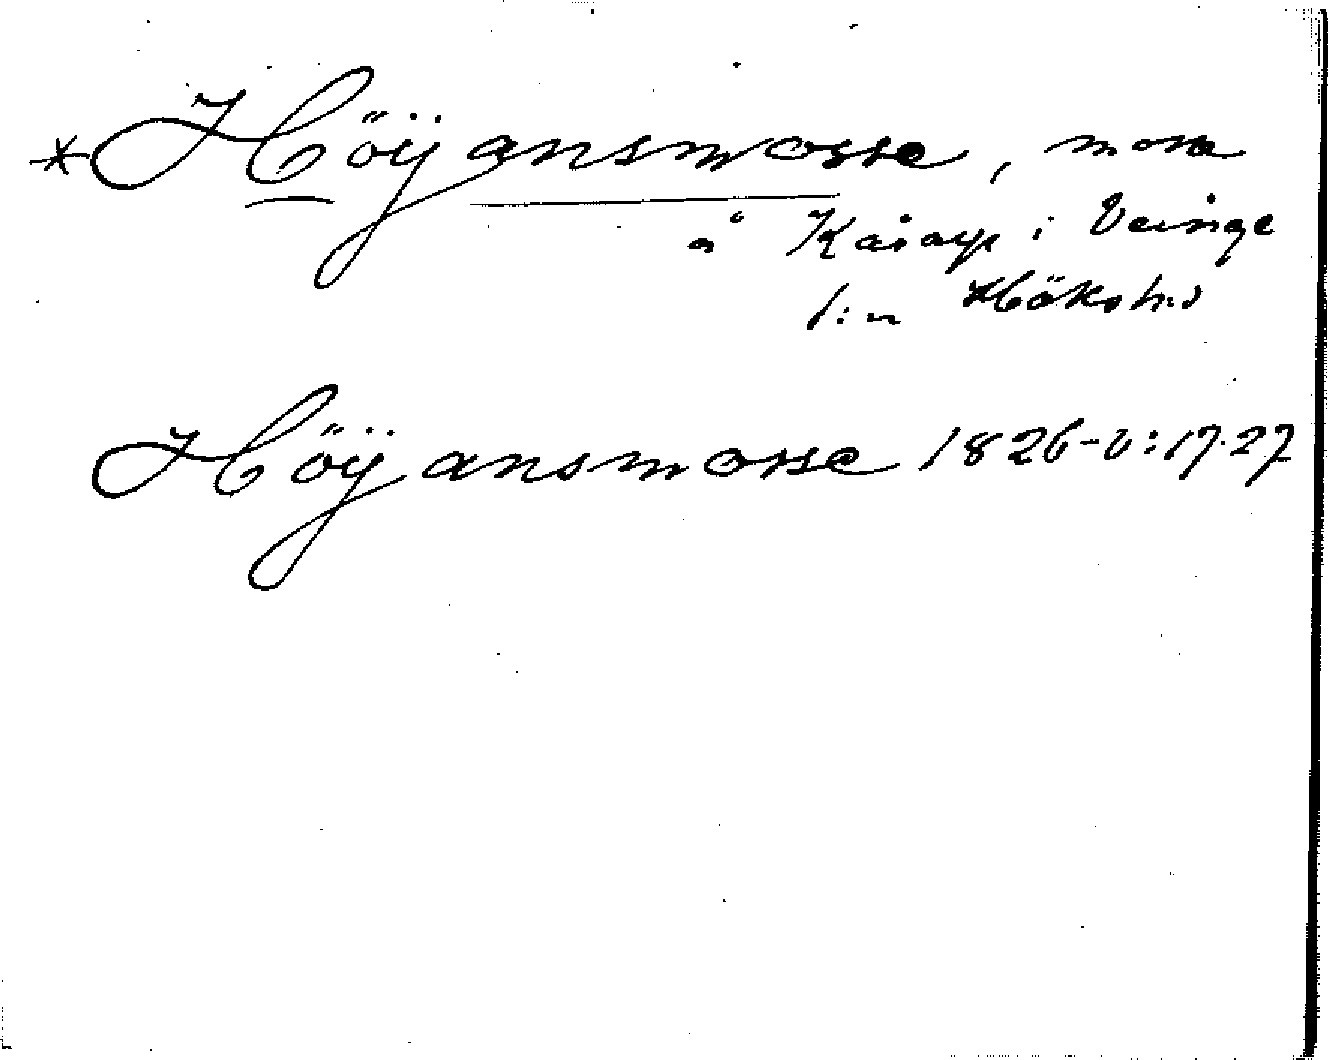 *Höijansmosse, mosse
å Kåiarp i Veinge
s:n Höks h:d
Höijansmosse 1826-v:17.27